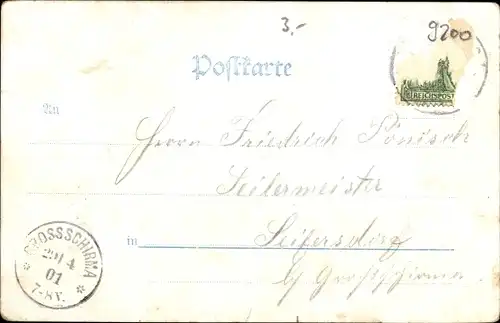 3.-
9200
Postkarte
REICHSPOST
An
Herrn Friedrich Pönisch
Seilermeister
in Seifersdorf
b/ Großschirma.
GROSSSCHIRMA
29/4
01
7-8V.